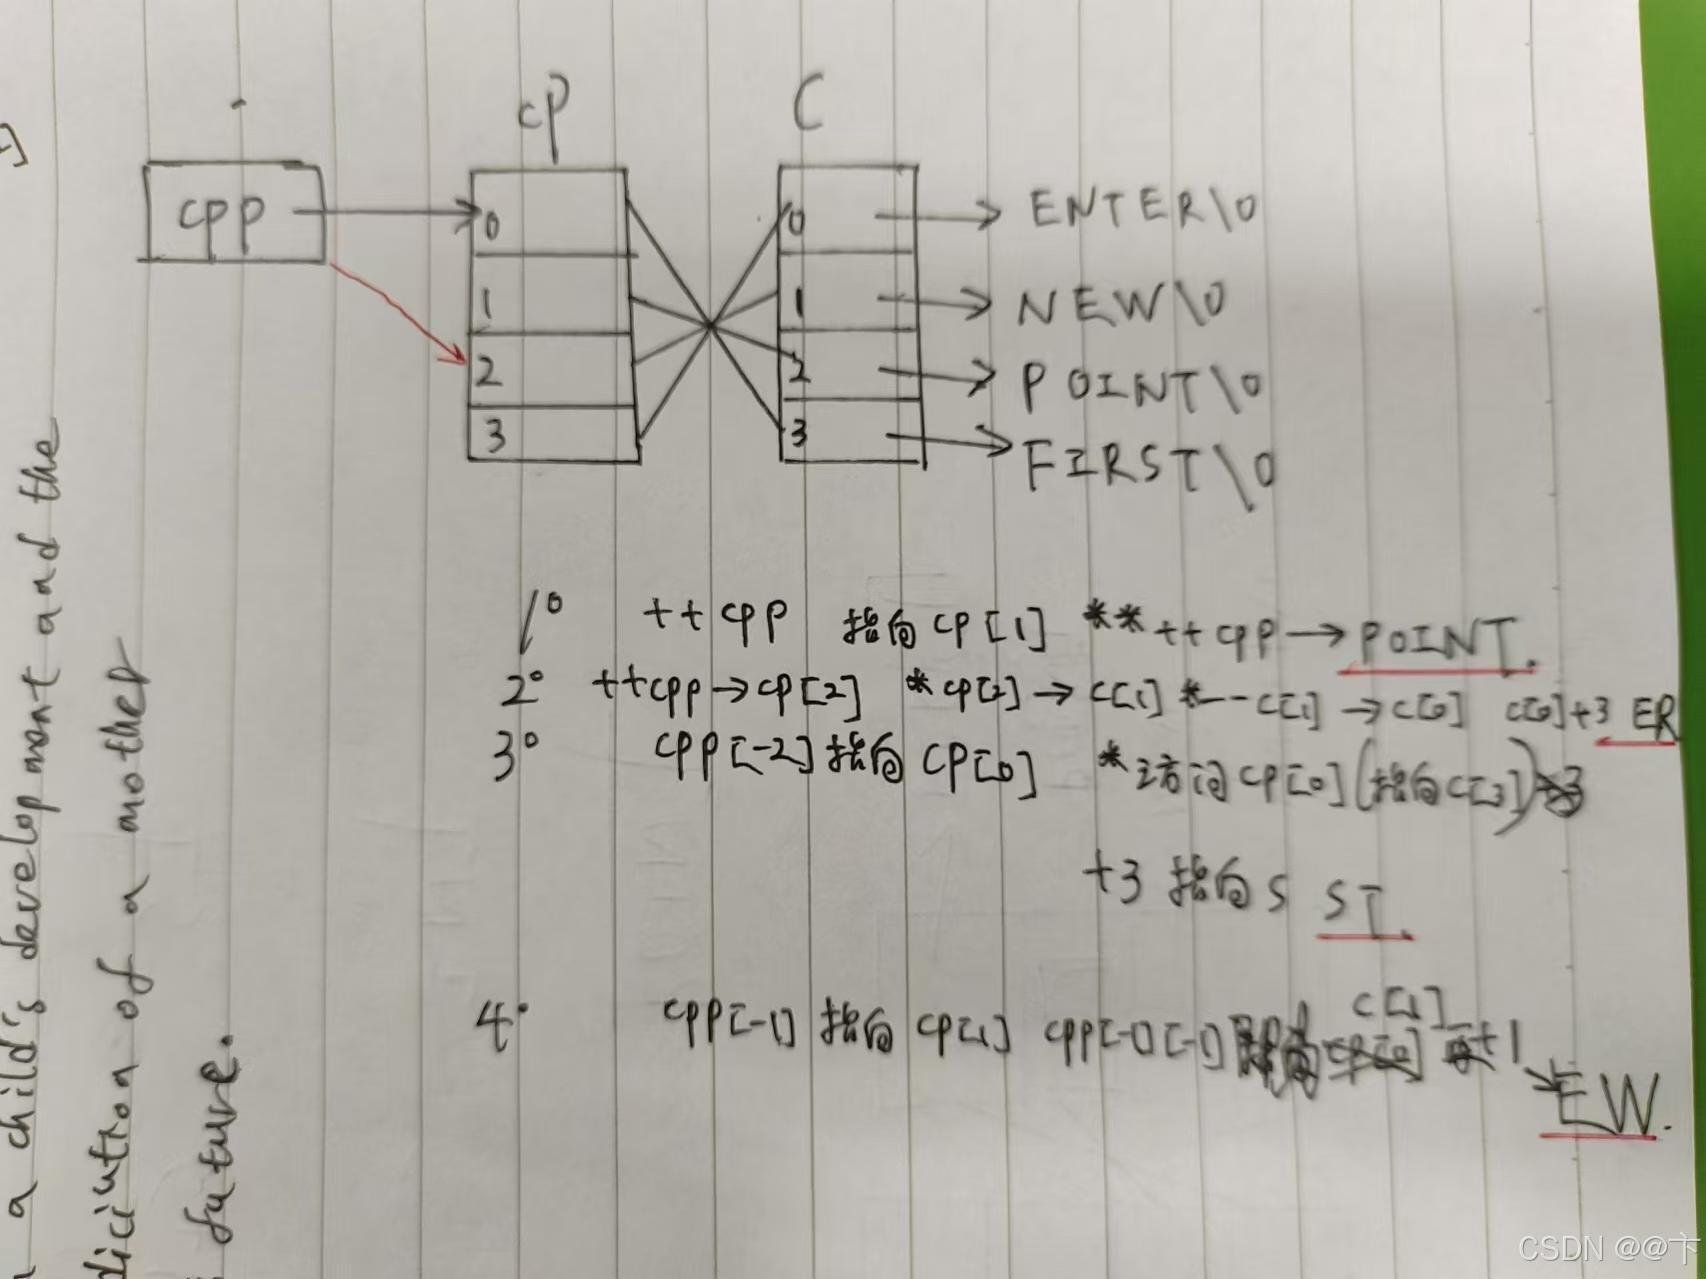 cp C
cpp
0 0 ENTER\0
1 1 NEW\0
2 2 POINT\0
3 3 FIRST\0
1° ++cpp 指向cp[1] **++cpp→POINT.
2° ++cpp→cp[2] *cp[2]→c[1] *--c[1]→c[0] c[0]+3 ER
3° cpp[-2]指向cp[0] *访问cp[0](指向c[3])
+3 指向S ST.
4° cpp[-1]指向cp[1] cpp[-1][-1] c[1] +1
→EW.
a child's development and the
of a another
future.
CSDN @@卞